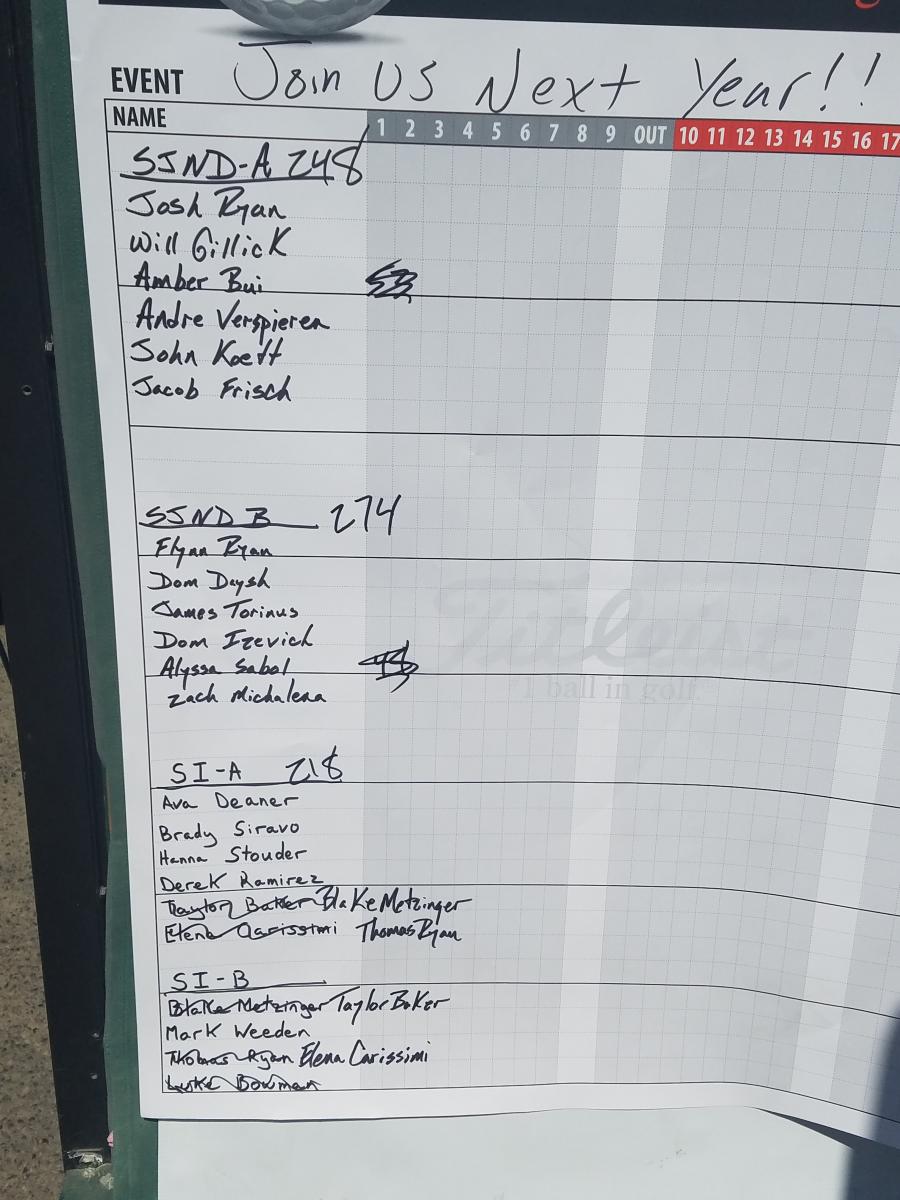 EVENT Join US Next Year!!
NAME 1 2 3 4 5 6 7 8 9 OUT 10 11 12 13 14 15 16 17
SJND-A 248
Josh Ryan
Will Gillick
Amber Bui 53
Andre Verspieren
John Koett
Jacob Frisch
SJND B 274
Flynn Ryan
Dom Daysh
James Torinus
Dom Izevich
Alyssa Sabol
Zach Michalena
Titleist
#1 ball in golf
SI-A 218
Ava Deaner
Brady Siravo
Hanna Stouder
Derek Ramirez
Taylor Baker Blake Metzinger
Elena Carissimi Thomas Ryan
SI-B
Blake Metzinger Taylor Baker
Mark Weeden
Thomas Ryan Elena Carissimi
Luke Bowman